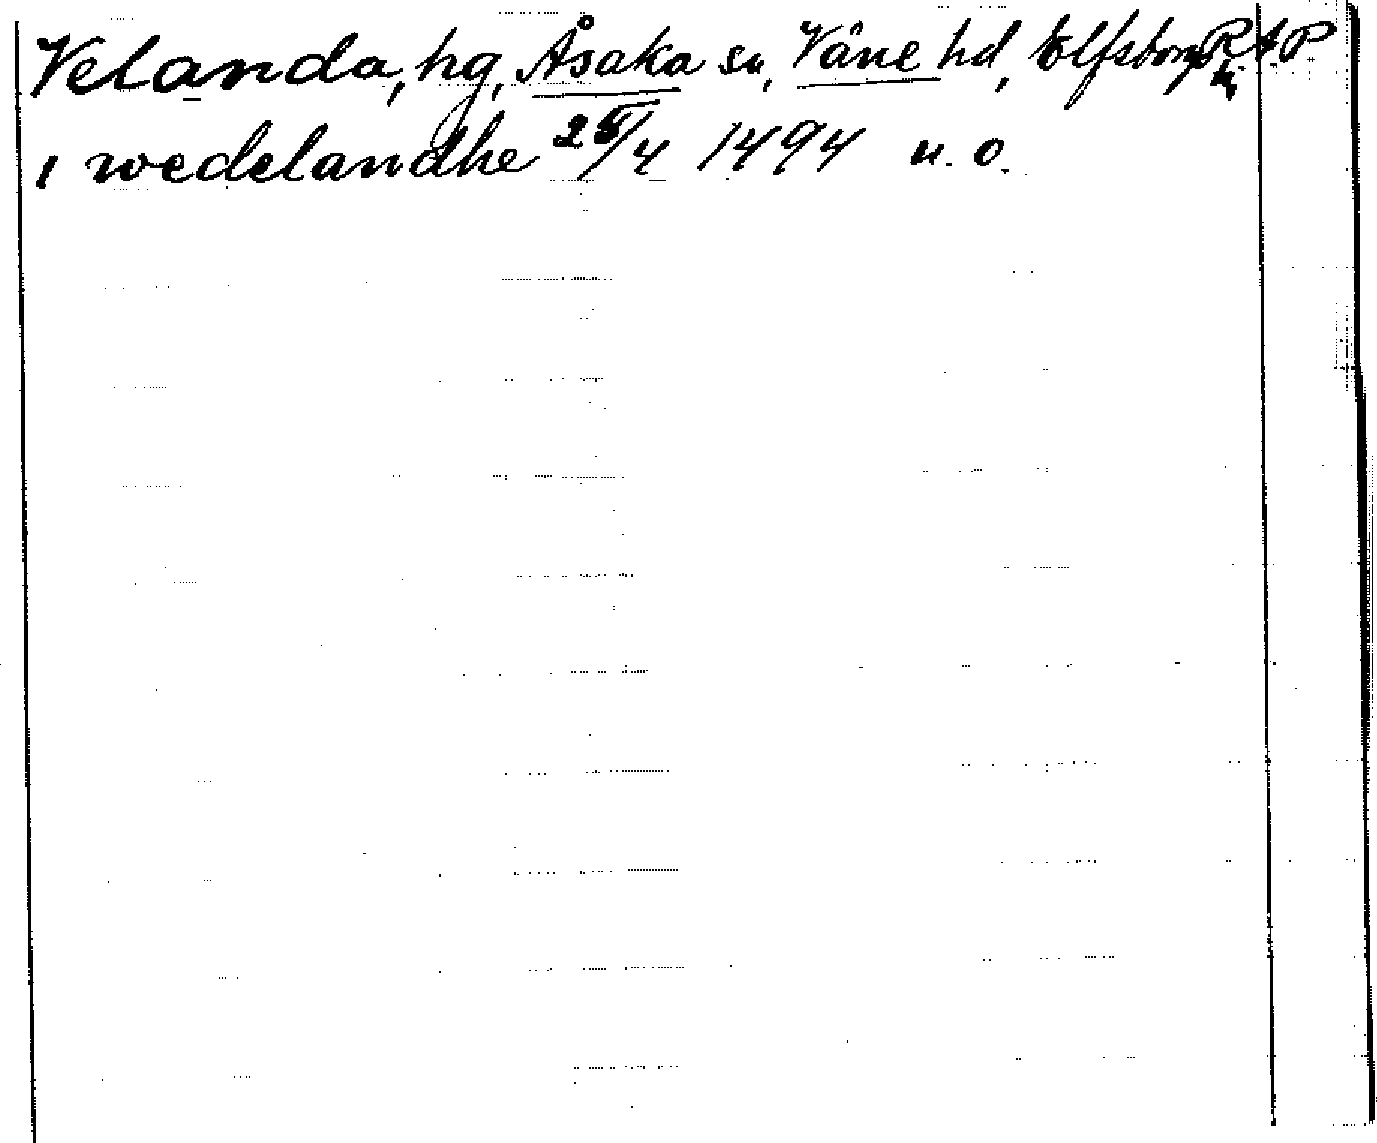 Velanda, hg, Åsaka sn, Väne hd, Elfsborgs R.A.P
i wedelandhe 25/4 1494 u. o.